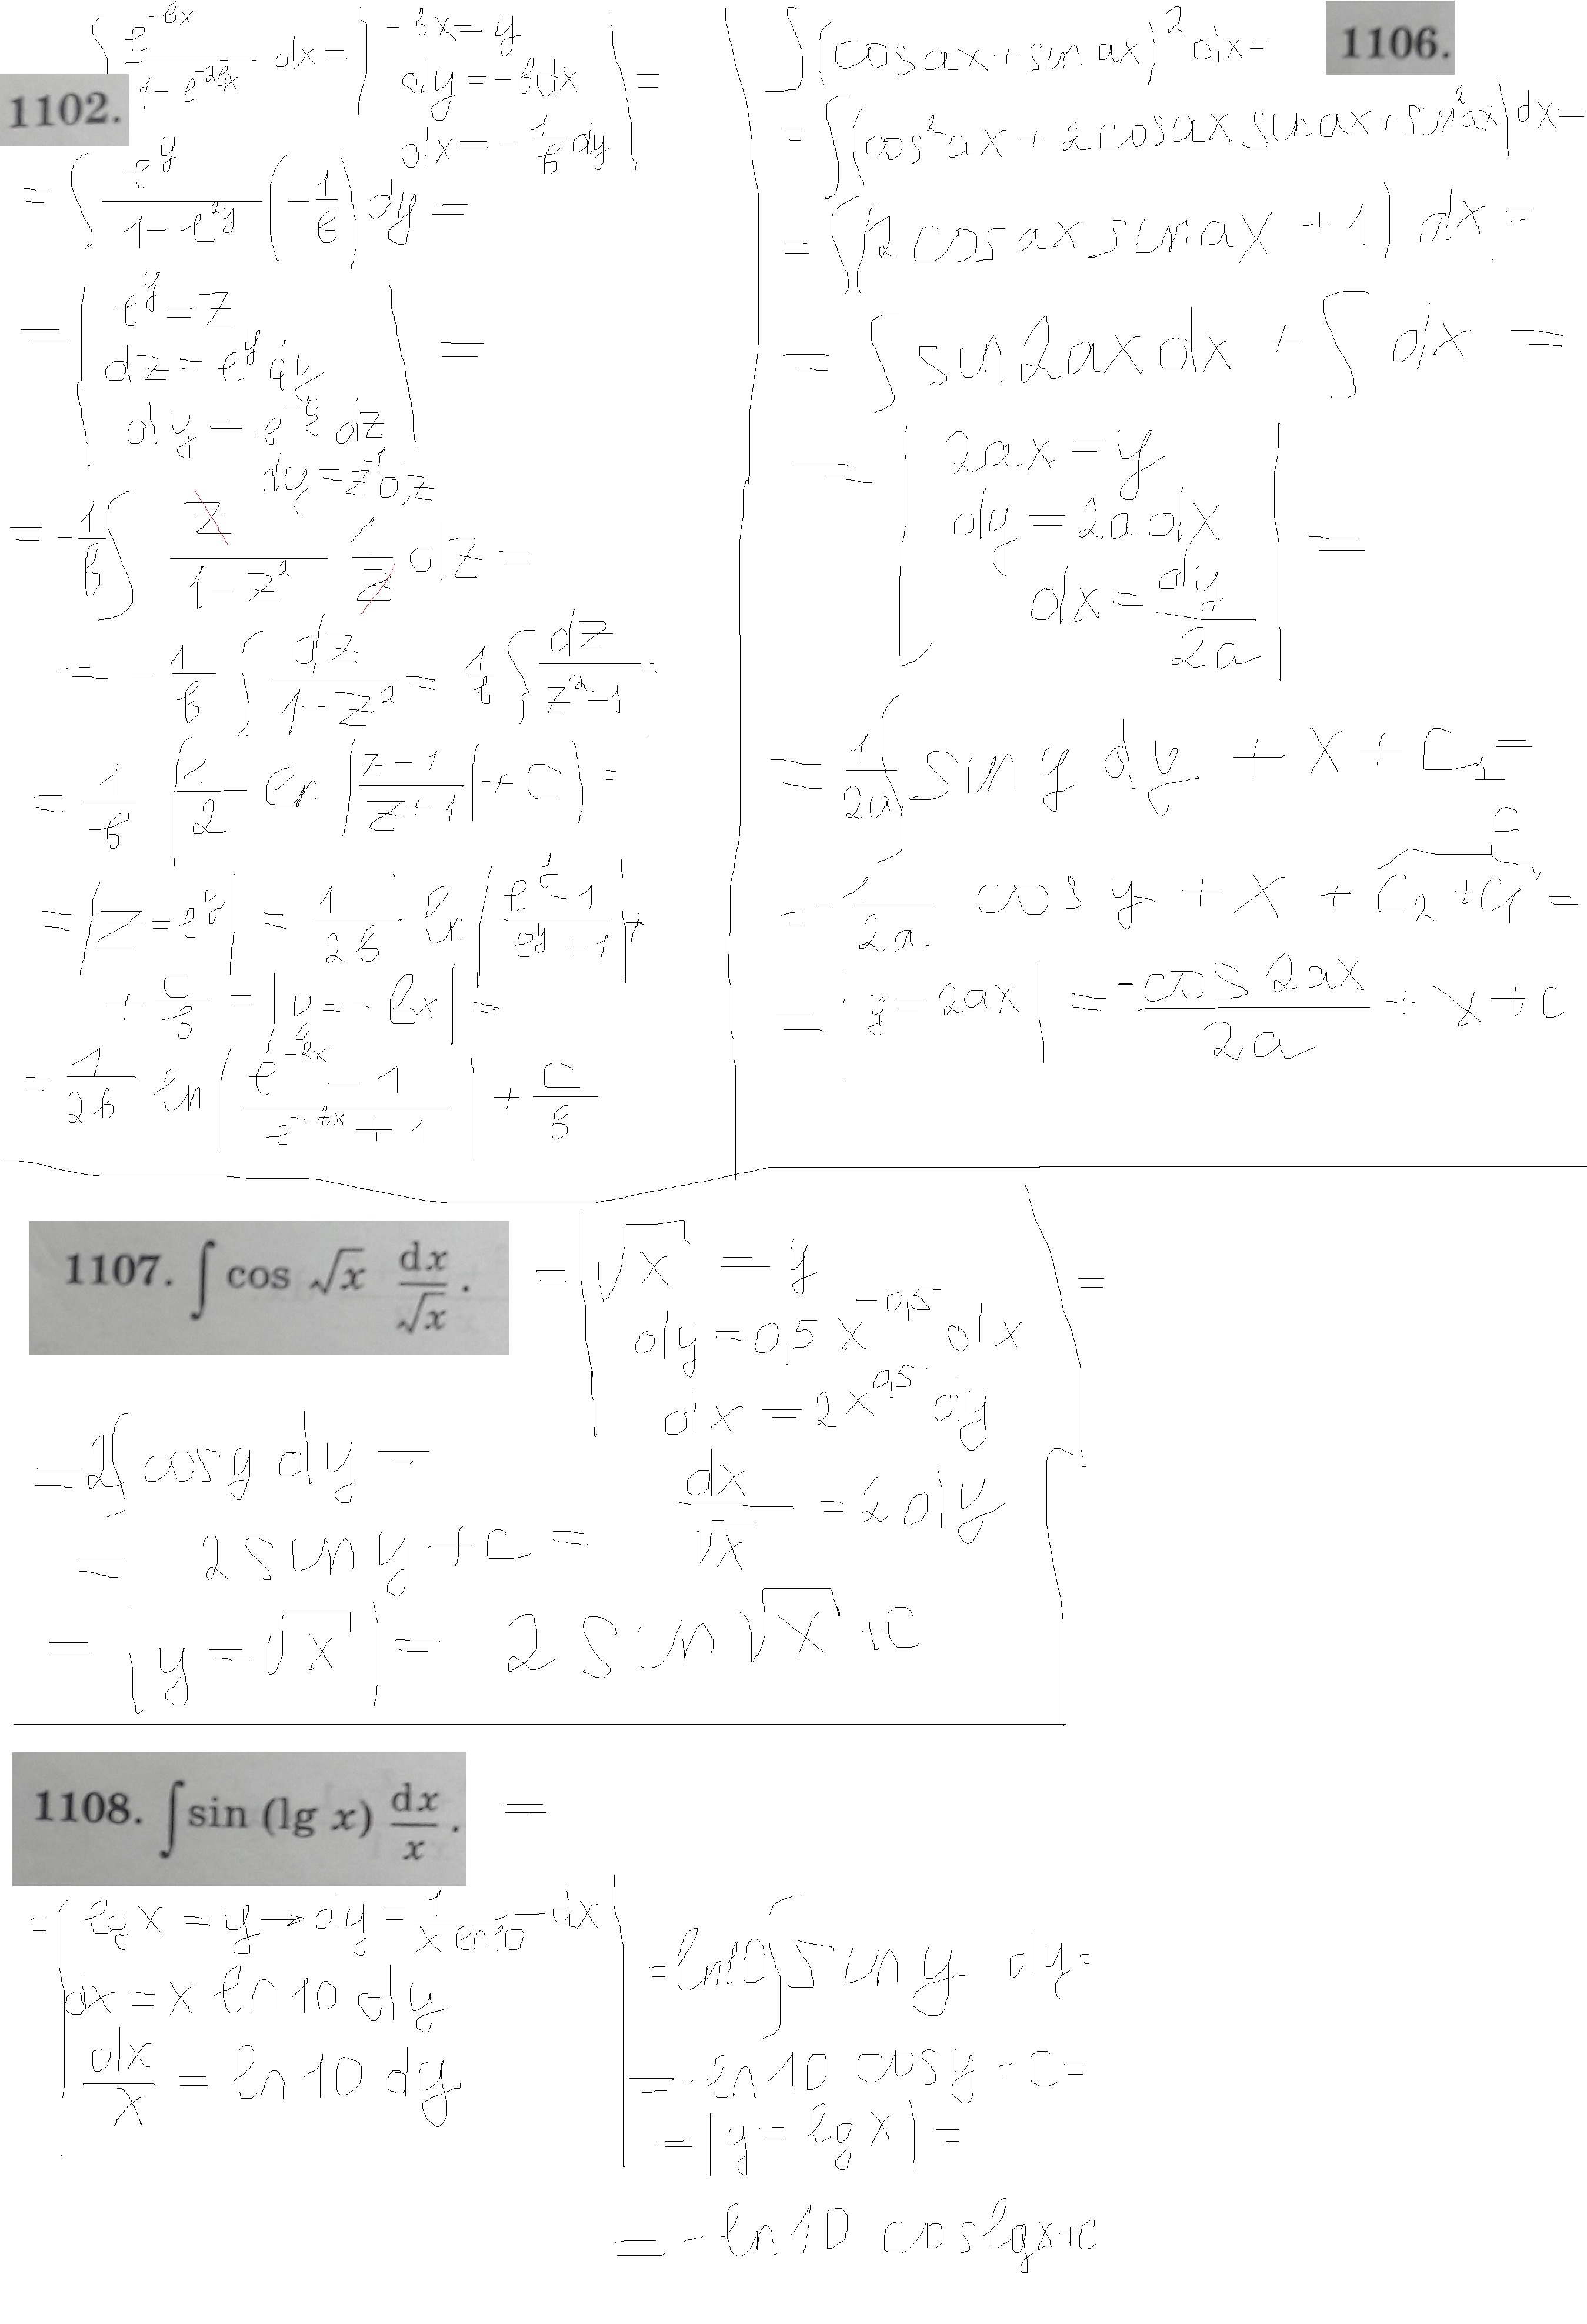 1102. ∫ e^(-вx) / (1 - e^(-2вx)) dx = | -вx = y
dy = -вdx
dx = - 1/в dy | =
= ∫ e^y / (1 - e^(2y)) (-1/в) dy =
= | e^y = z
dz = e^y dy
dy = e^(-y) dz
dy = z^(-1) dz | =
= - 1/в ∫ z / (1 - z²) 1/z dz =
= - 1/в ∫ dz / (1 - z²) = 1/в ∫ dz / (z² - 1) =
= 1/в (1/2 ln |(z - 1)/(z + 1)| + C) =
= |z = e^y| = 1/2в ln |(e^y - 1)/(e^y + 1)| +
+ c/в = |y = -вx| =
= 1/2в ln |(e^(-вx) - 1)/(e^(-вx) + 1)| + c/в
∫ (cos ax + sin ax)² dx = 1106.
= ∫ (cos² ax + 2 cos ax sin ax + sin² ax) dx =
= ∫ (2 cos ax sin ax + 1) dx =
= ∫ sin 2ax dx + ∫ dx =
= | 2ax = y
dy = 2a dx
dx = dy/2a | =
= 1/2a ∫ sin y dy + x + C₁ =
c
= - 1/2a cos y + x + C₂ + C₁ =
= |y = 2ax| = -cos 2ax / 2a + x + c
1107. ∫ cos √x dx/√x. = | √x = y
dy = 0,5 x^(-0,5) dx
dx = 2x^(0,5) dy
dx/√x = 2 dy | =
= 2∫ cos y dy =
= 2 sin y + c =
= |y = √x| = 2 sin √x + c
1108. ∫ sin (lg x) dx/x. =
= | lg x = y → dy = 1/(x ln 10) dx
dx = x ln 10 dy
dx/x = ln 10 dy |
= ln10 ∫ sin y dy =
= -ln 10 cos y + c =
= |y = lg x| =
= -ln 10 cos lg x + c